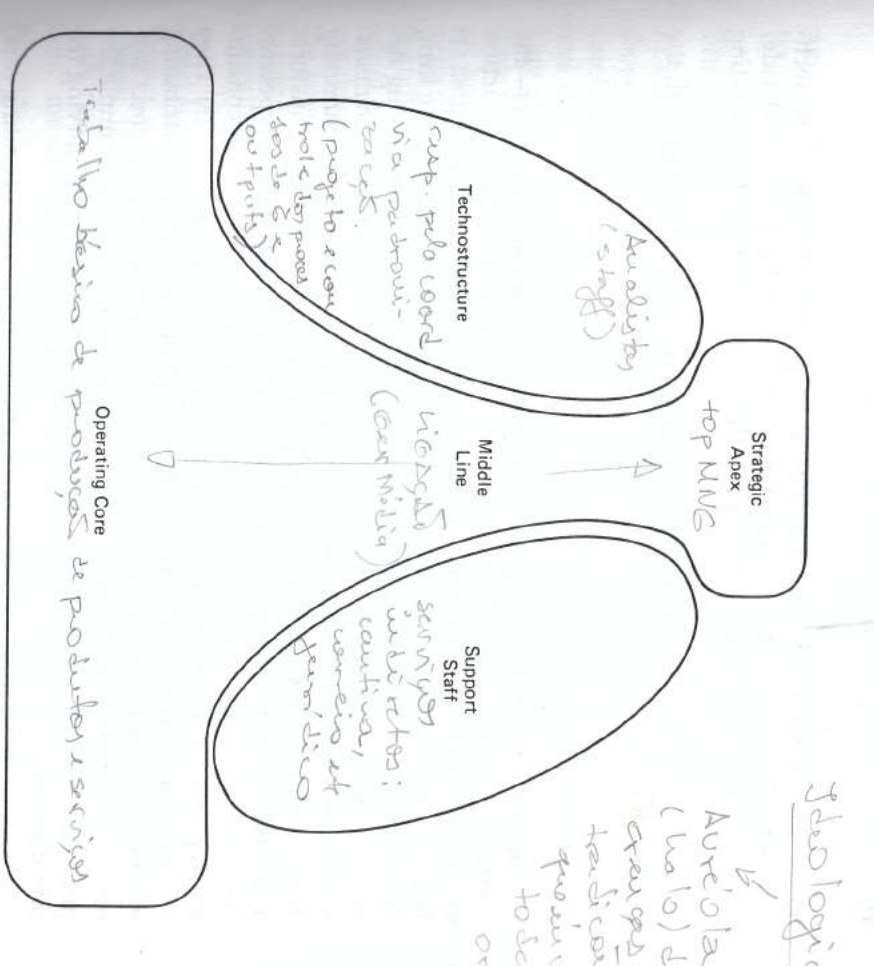 Strategic
Apex
top MNG
Analistas
(staff)
Technostructure
resp. pela coord
via padroni-
zação.
(projeto e con
trole dos proces
sos de e
outputs)
Middle
Line
ligação
(Ger Média)
Support
Staff
serviços
indiretos:
cantina,
correio etc
jurídico
Operating Core
Trabalho básico de produção de produtos e serviços
Ideologi
Auréola
(halo) d
crenças
tradiçõ
to